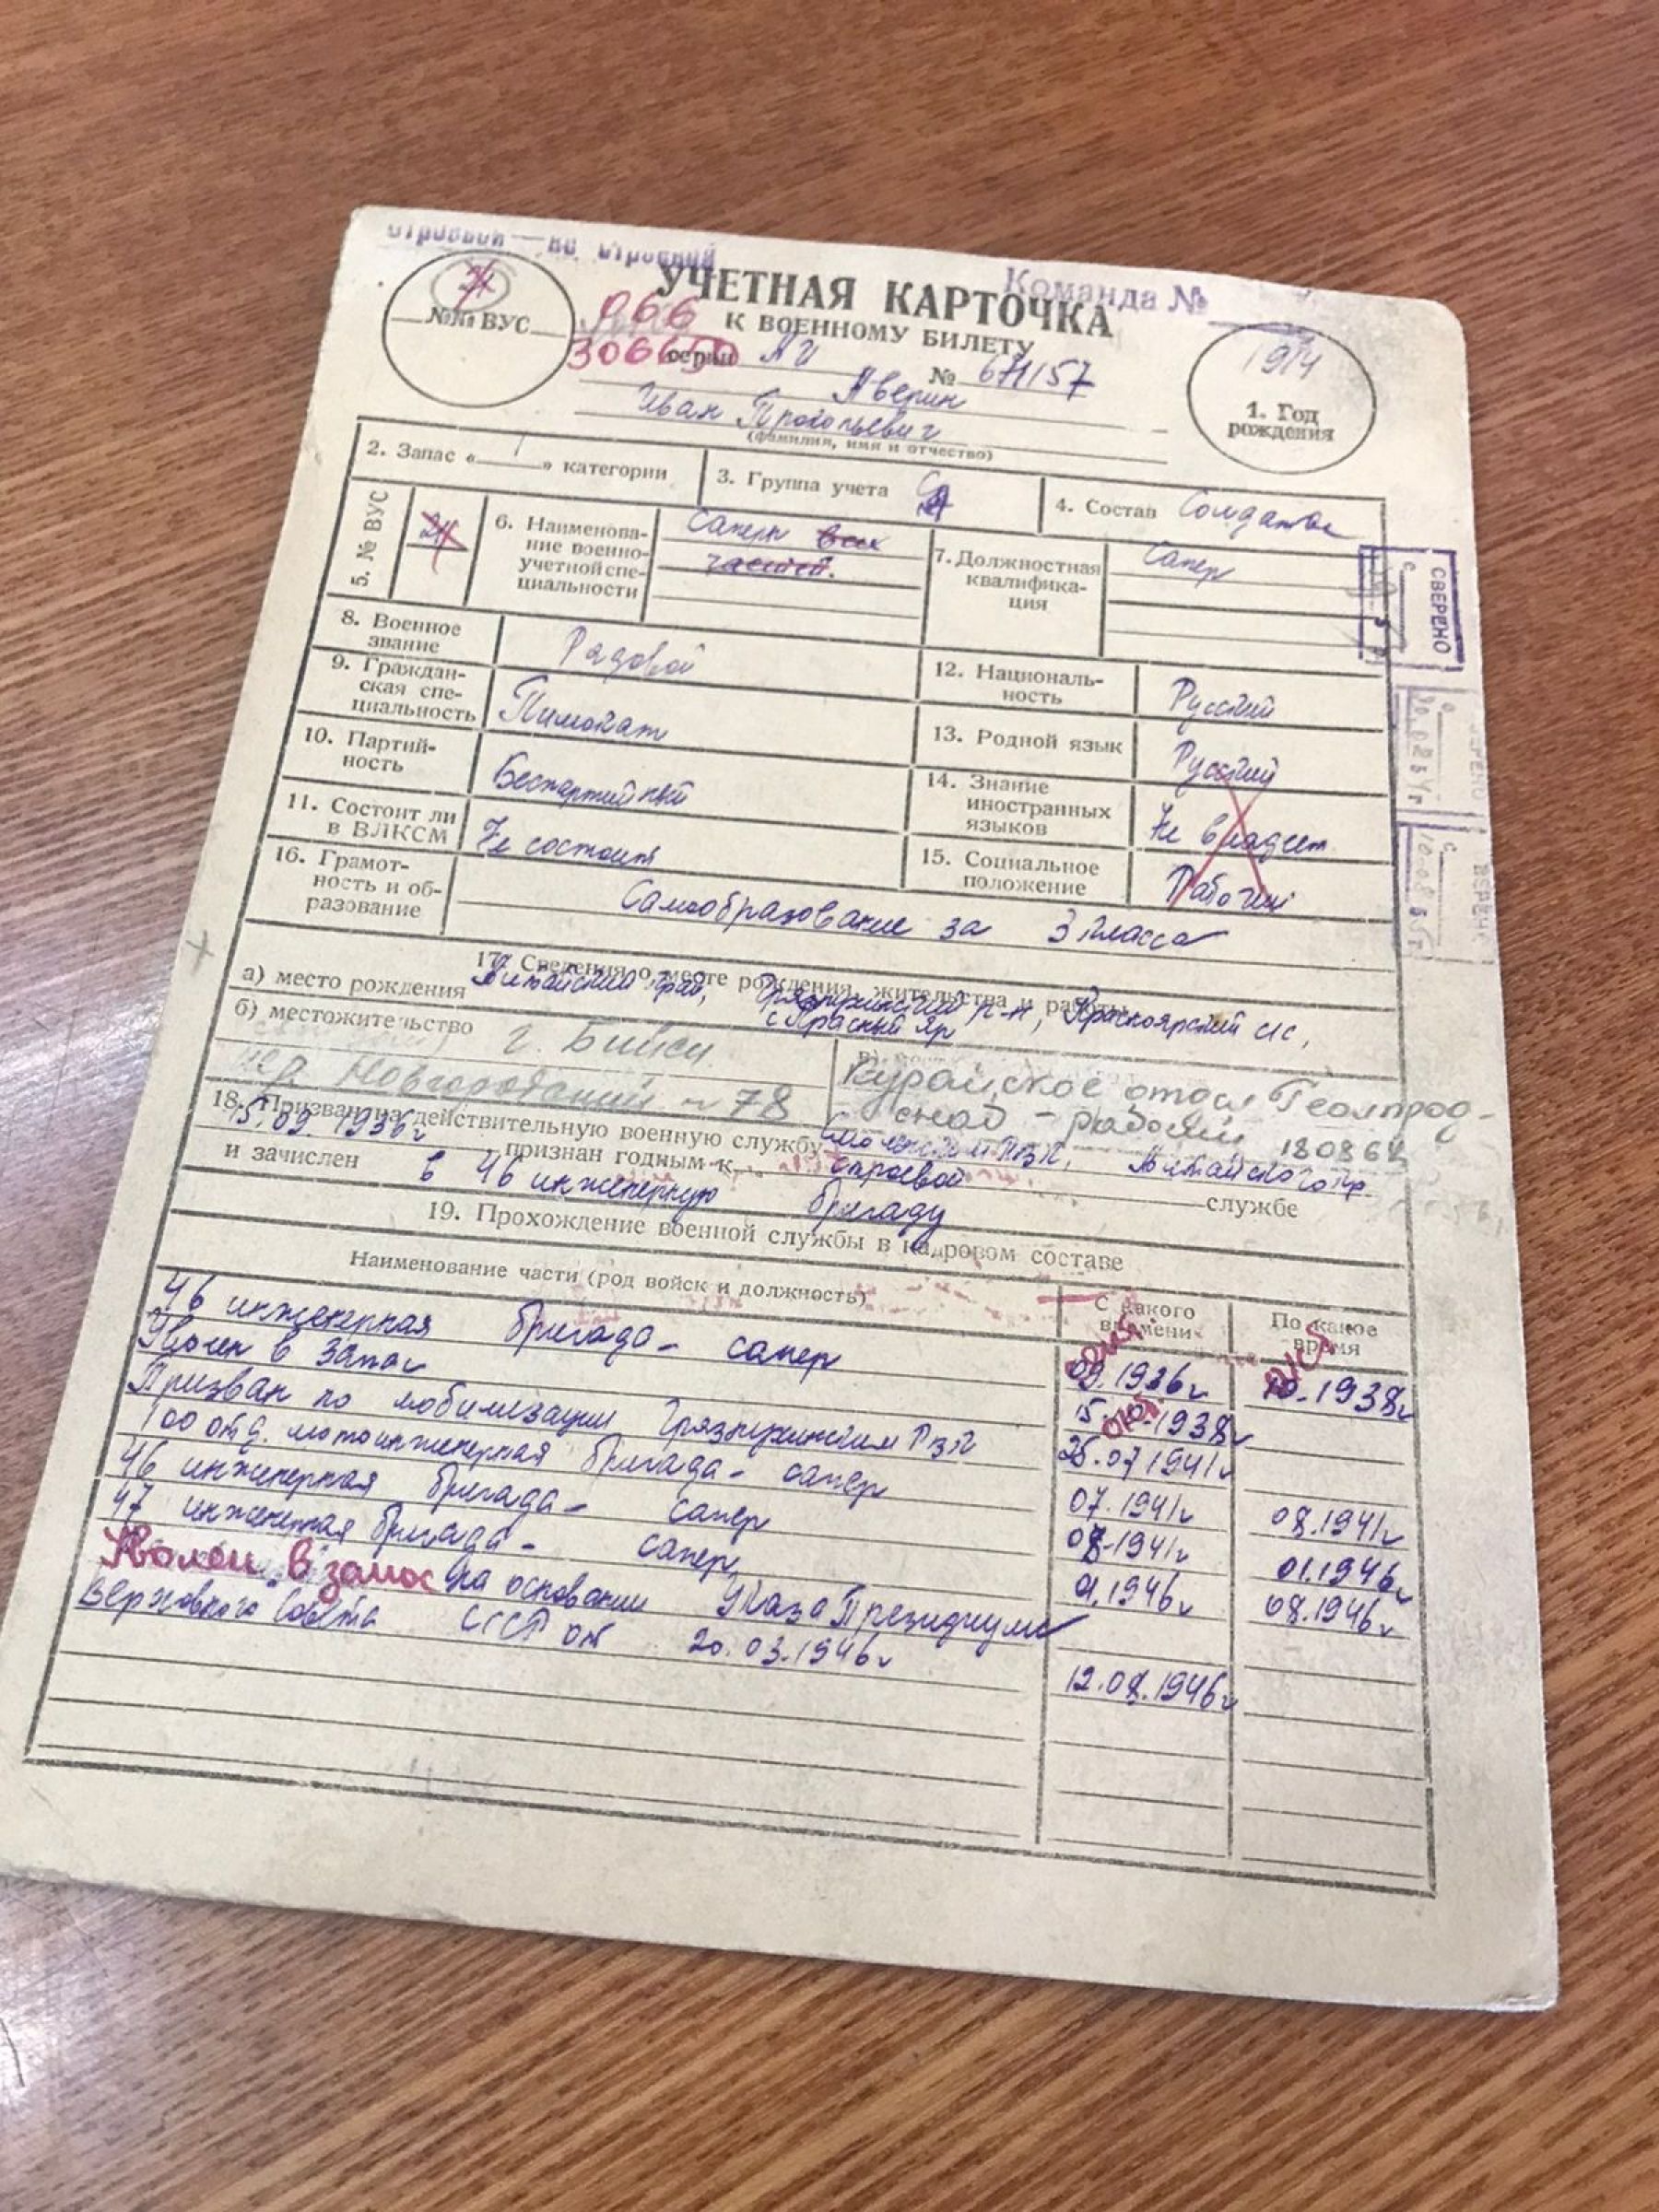 строевой — не строевой
Команда №
УЧЕТНАЯ КАРТОЧКА
К ВОЕННОМУ БИЛЕТУ
№№ ВУС
066
306650
серии АИ № 671157
Аверин
Иван Прокопьевич
(фамилия, имя и отчество)
1914
1. Год рождения
2. Запас « 1 » категории
3. Группа учета
4. Состав Солдатск
5. № ВУС
6. Наименова-
ние военно-
учетной спе-
циальности
Сапери всех
частей.
7. Должностная
квалифика-
ция
Сапер
8. Военное
звание
Рядовой
9. Граждан-
ская спе-
циальность
Пимокат
10. Партий-
ность
Беспартийный
11. Состоит ли
в ВЛКСМ
Не состоит
12. Националь-
ность
Русский
13. Родной язык
Русский
14. Знание
иностранных
языков
Не владеет
15. Социальное
положение
Рабочий
16. Грамот-
ность и об-
разование
Самообразование за 3 класса
17. Сведения о месте рождения, жительства и работы
а) место рождения Алтайский край, Грязнухинский р-н, Красноярский с/с,
с Красный Яр
б) местожительство г. Бийск
пер Новгородский 78
Курайское отд Геолпрод-
снаб - рабочий 180864
18. Призван на действительную военную службу Смоленским РВК, Алтайского кр
15.09.1936г признан годным к строевой службе
и зачислен в 46 инженерную бригаду
19. Прохождение военной службы в кадровом составе
Наименование части (род войск и должность)
С какого
времени
По какое
время
46 инженерная бригада - сапер 09.1936г 10.1938г
Уволен в запас 15.10.1938г
Призван по мобилизации Грязнухинским РВК 25.07.1941г
100 отд. мотоинженерная бригада - сапер 07.1941г 08.1941г
46 инженерная бригада - сапер 08.1941г 01.1946г
47 инженерная бригада - сапер 01.1946г 08.1946г
Уволен в запас На основании Указа Президиума
Верховного Совета СССР от 20.03.1946г 12.08.1946г
СВЕРЕНО